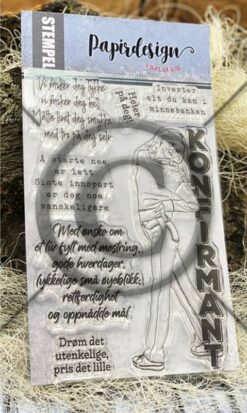 STEMPEL
Papirdesign
Vi ønsker deg lykke
vi ønsker deg hell
Måtte livet deg smykke
med tro på deg selv
Heier
på deg!
Invester
alt du kan i
minnebanken
Å starte noe
er lett
Siste innspurt
er dog noe
vanskeligere
KONFIRMANT
Med ønske om
et liv fylt med mestring,
gode hverdager,
lykkelige små øyeblikk,
rettferdighet
og oppnådde mål
Drøm det
utenkelige,
pris det lille